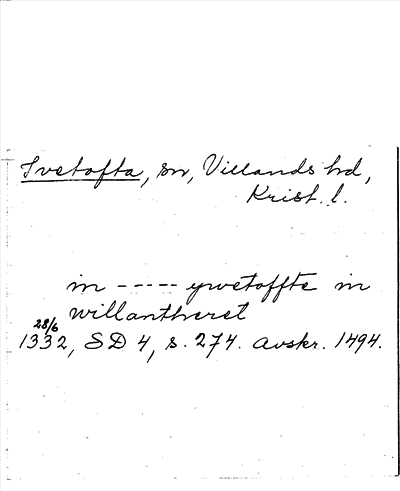 Ivetofta, sn, Villands hd,
Krist. l.
in ----- ywetoffte in
willantheret
28/6
1332, SD 4, s. 274. avskr. 1494.